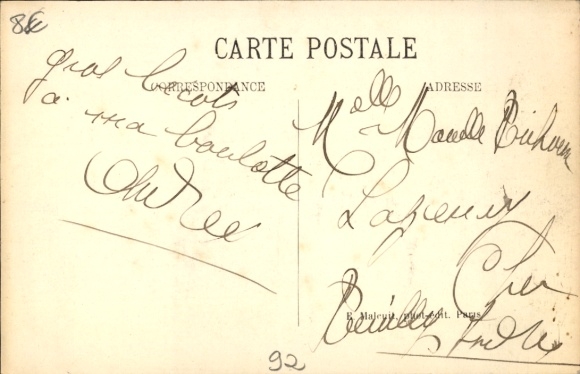 CARTE POSTALE
CORRESPONDANCE
gros bécots
a ma boulotte
Andrée
ADRESSE
Melle
Lazenay
Cher
Reuilly Indre
E. Malcuit, phot-édit. Paris
92